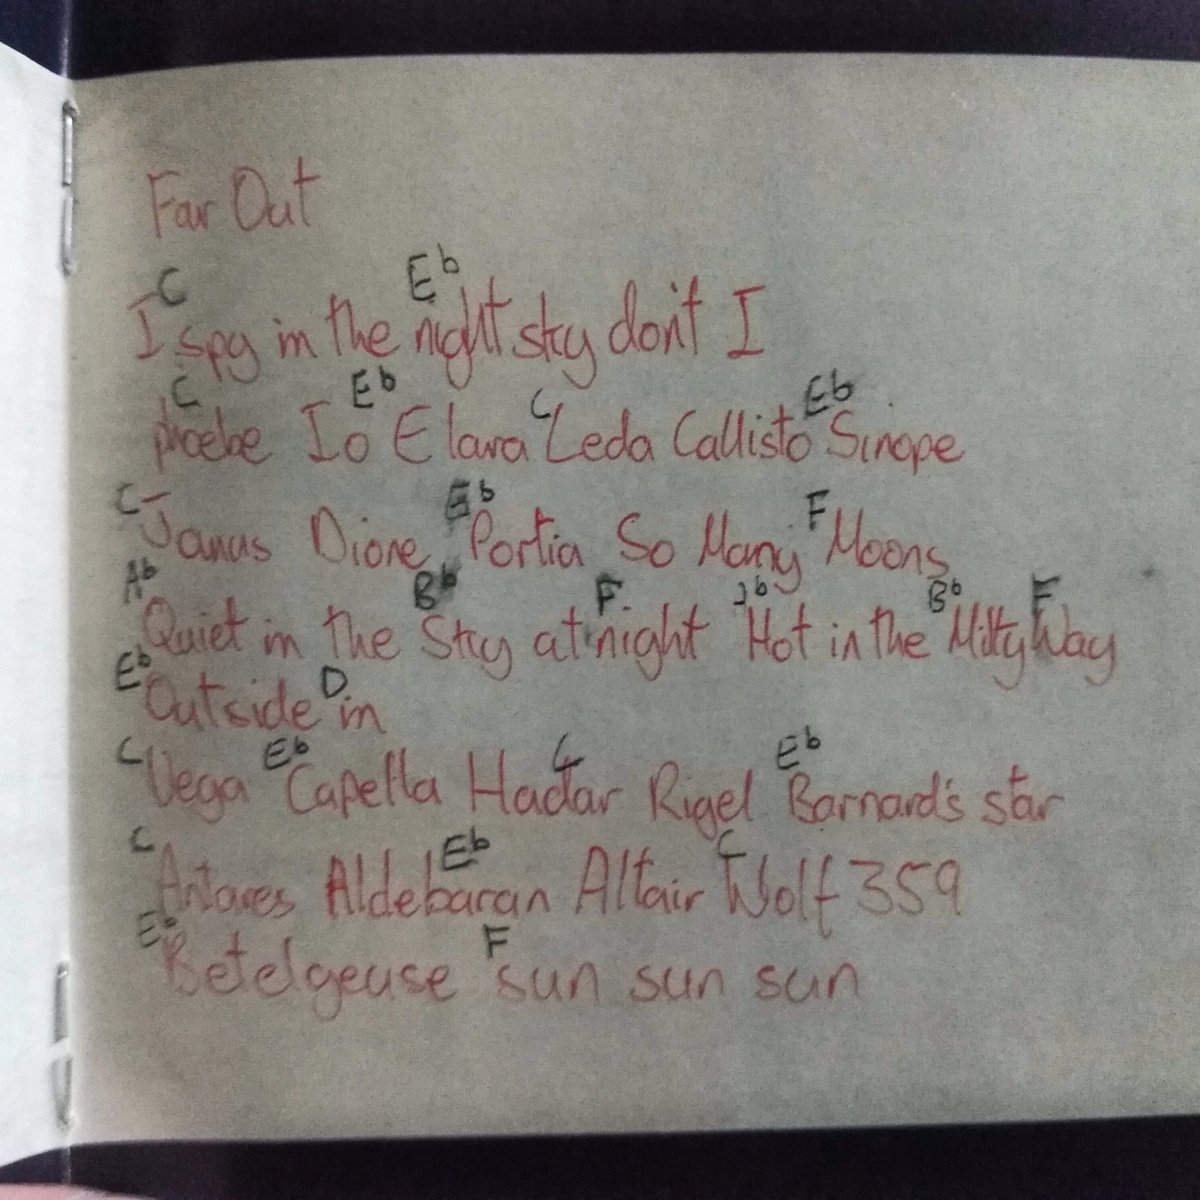 Far Out
C Eb
I spy in the night sky don't I
C Eb C Eb
phoebe Io Elara Leda Callisto Sinope
C Eb F
Janus Dione Portia So Many Moons
Ab Bb F. Bb F
Quiet in the Sky at night Hot in the Milky Way
Eb D
Outside in
C Eb C Eb
Vega Capella Hadar Rigel Barnard's star
C Eb C
Antares Aldebaran Altair Wolf 359
Eb F
Betelgeuse sun sun sun